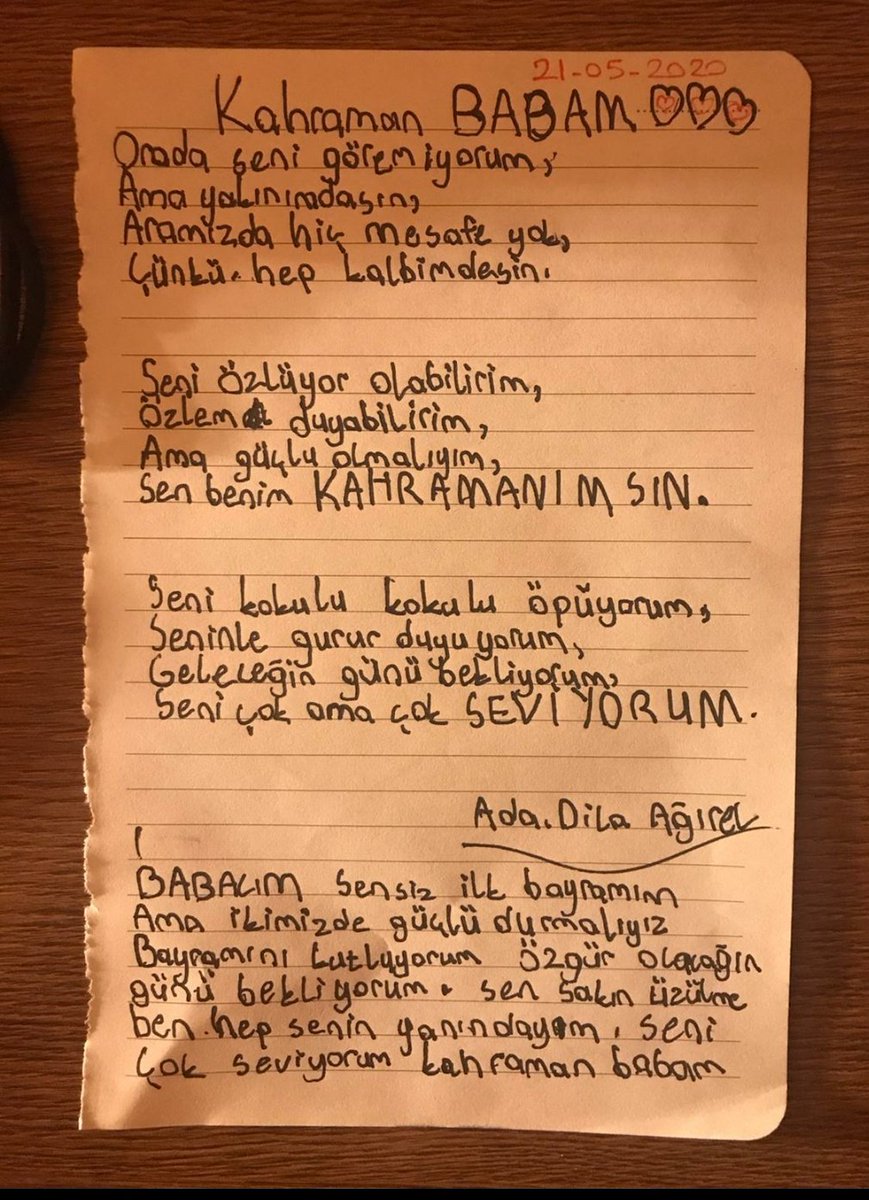 21-05-2020
Kahraman BABAM
Orada seni göremiyorum,
Ama yakınımdasın,
Aramızda hiç mesafe yok,
Çünkü hep kalbimdesin.
Seni özlüyor olabilirim,
Özlem duyabilirim,
Ama güçlu olmalıyım,
Sen benim KAHRAMANIMSIN.
Seni kokulu kokulu öpüyorum,
Seninle gurur duyuyorum,
Geleceğin günü bekliyorum,
Seni çok ama çok SEVİYORUM.
Ada.Dila Ağırel
BABACIM sensiz ilk bayramım
Ama ikimizde güçlü durmalıyız
Bayramını kutluyorum özgür olacağın
günü bekliyorum. sen sakın üzülme
ben hep senin yanındayım, seni
çok seviyorum kahraman babam